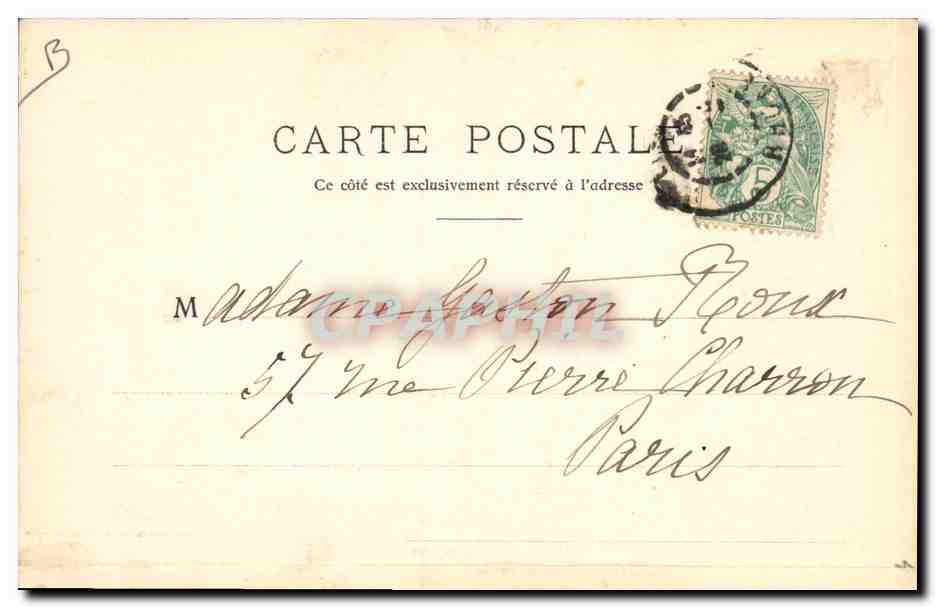 B
CARTE POSTALE
Ce côté est exclusivement réservé à l'adresse
5
POSTES
Madame Gaston Roux
CPAPHIL
57 rue Pierre Charron
Paris